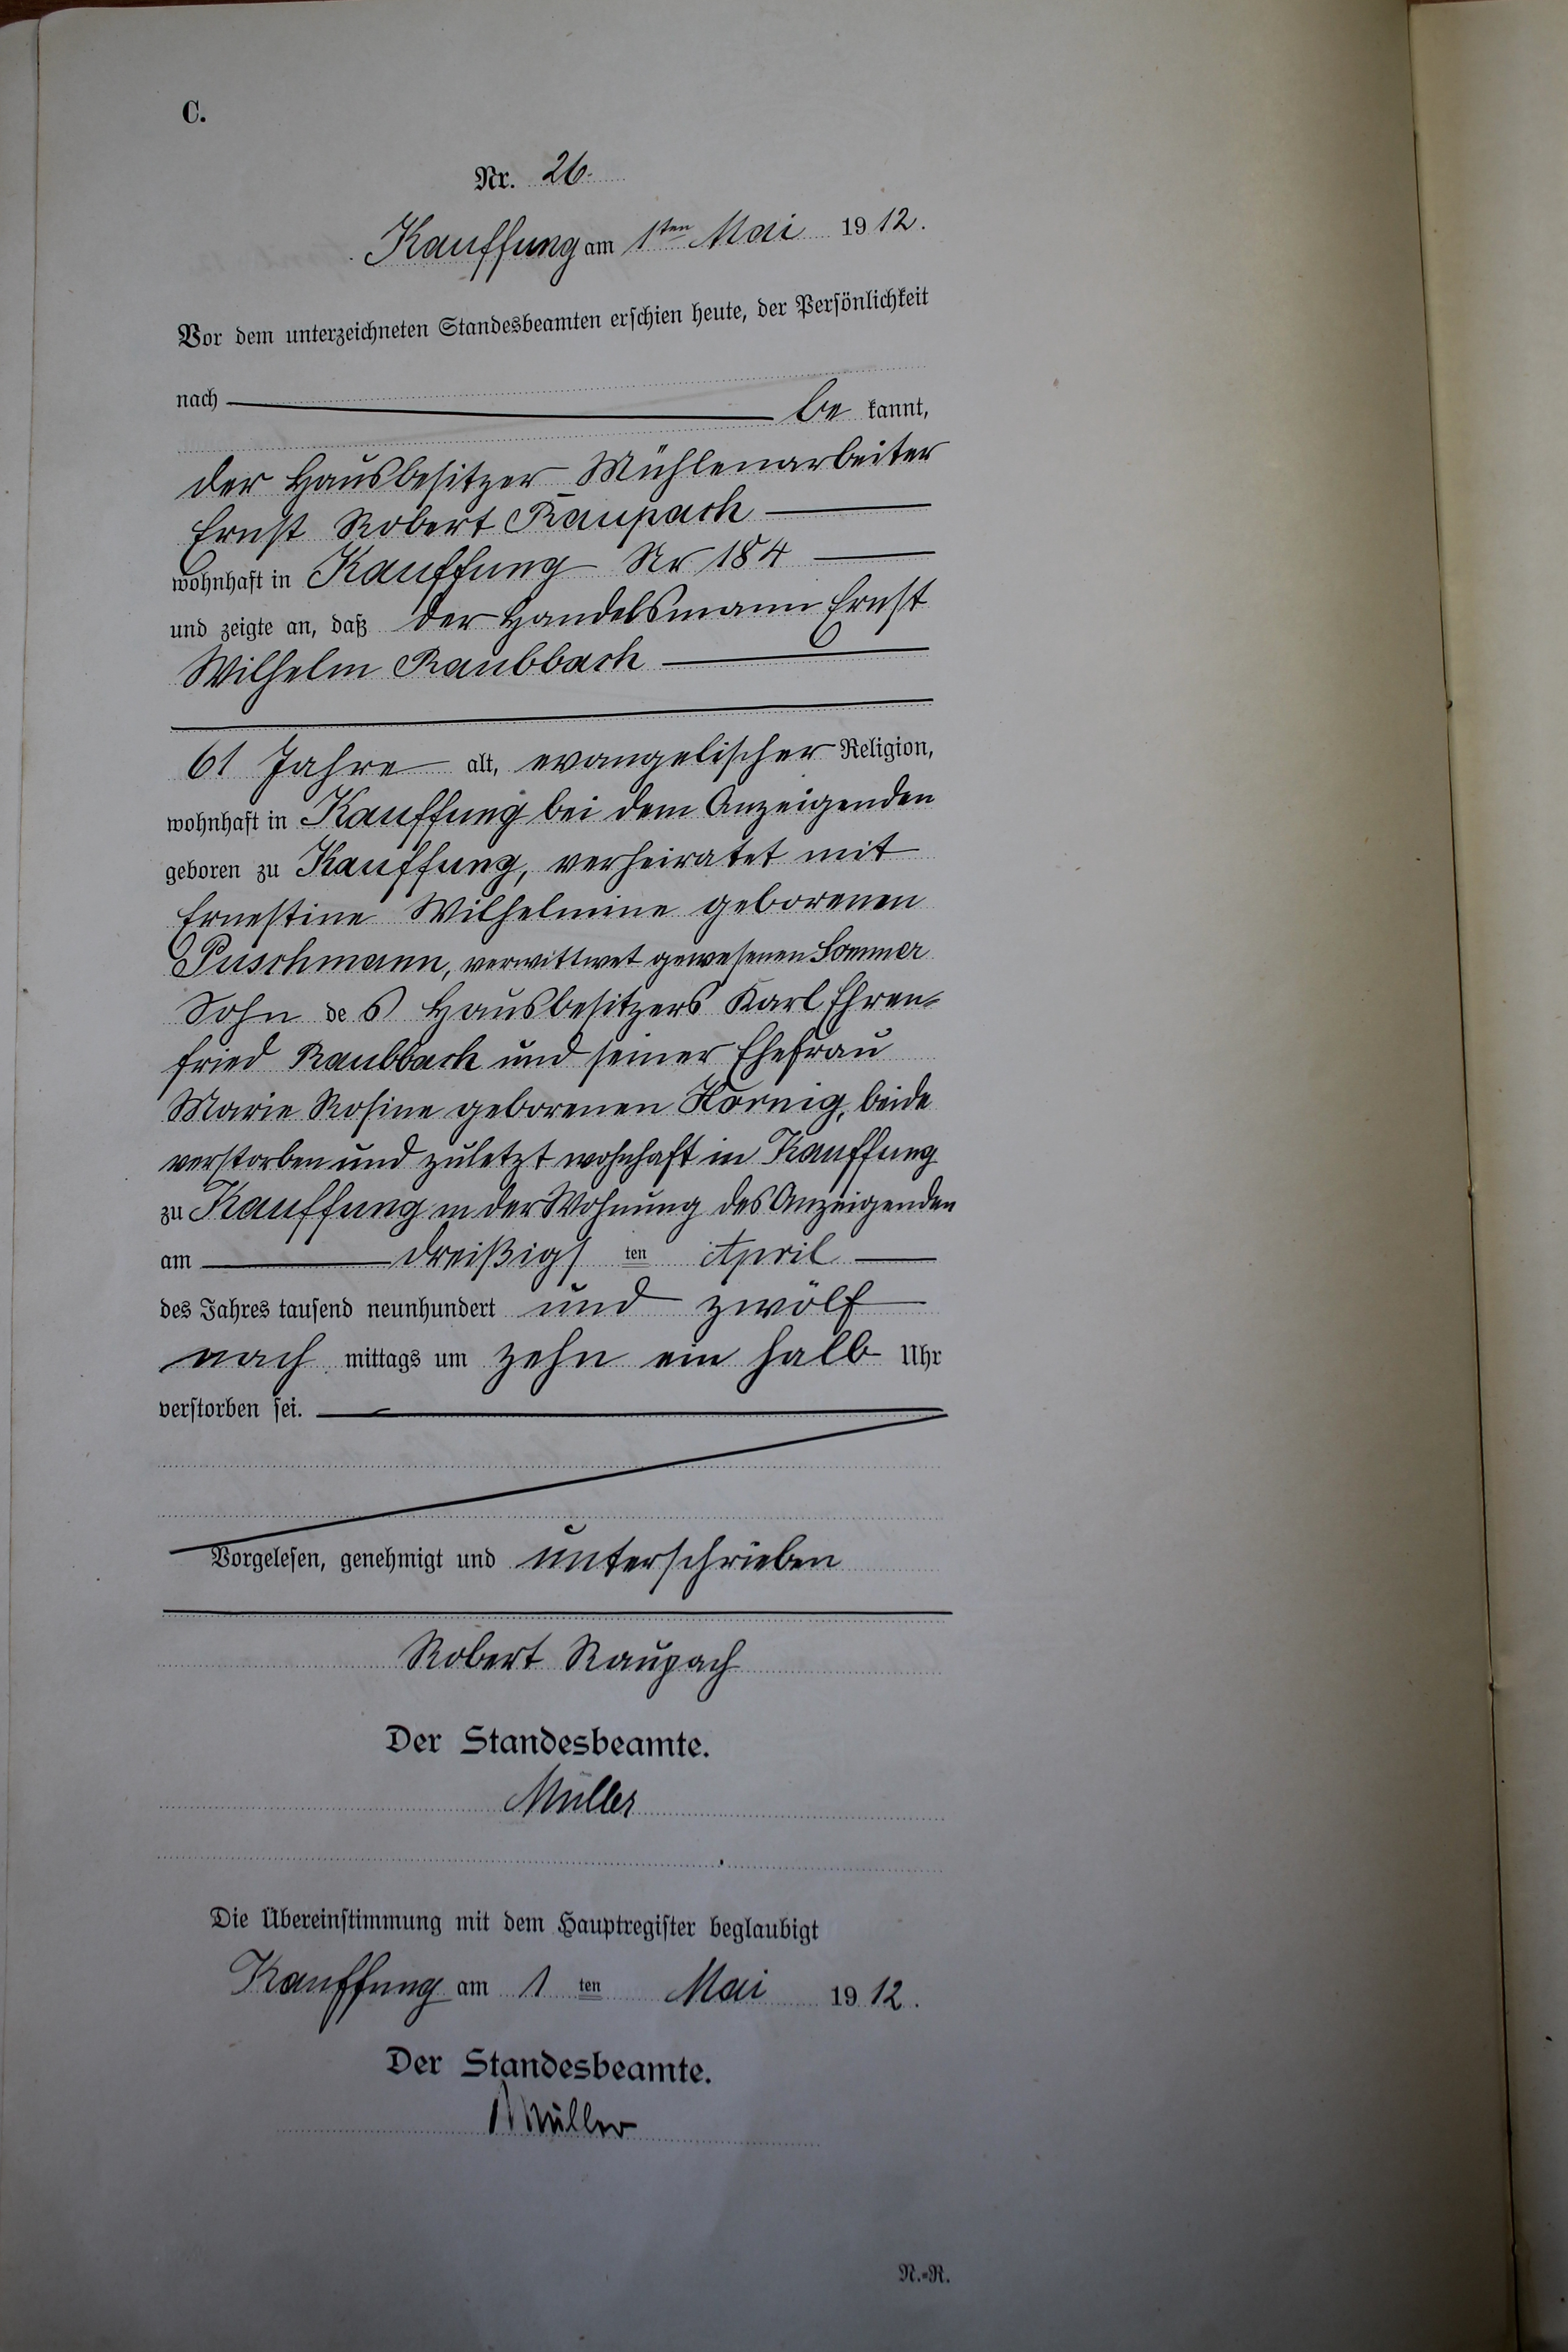 C.
Nr. 26.
Kauffung am 1ten Mai 1912.
Vor dem unterzeichneten Standesbeamten erschien heute, der Persönlichkeit
nach be kannt,
der Hausbesitzer Mühlenarbeiter
Ernst Robert Raupach
wohnhaft in Kauffung Nr 184
und zeigte an, daß der Handelsmann Ernst
Wilhelm Raubbach
61 Jahre alt, evangelischer Religion,
wohnhaft in Kauffung bei dem Anzeigenden
geboren zu Kauffung, verheiratet mit
Ernestine Wilhelmine geborenen
Puschmann, verwittwet gewesenen Sommer
Sohn des Hausbesitzers Karl Ehren-
fried Raubbach und seiner Ehefrau
Marie Rosine geborenen Hornig, beide
verstorben und zuletzt wohnhaft in Kauffung
zu Kauffung in der Wohnung des Anzeigenden
am dreißigsten April
des Jahres tausend neunhundert und zwölf
nach mittags um zehn ein halb Uhr
verstorben sei.
Vorgelesen, genehmigt und unterschrieben
Robert Raupach
Der Standesbeamte.
Müller
Die Übereinstimmung mit dem Hauptregister beglaubigt
Kauffung am 1 ten Mai 1912.
Der Standesbeamte.
Müller
N.-R.